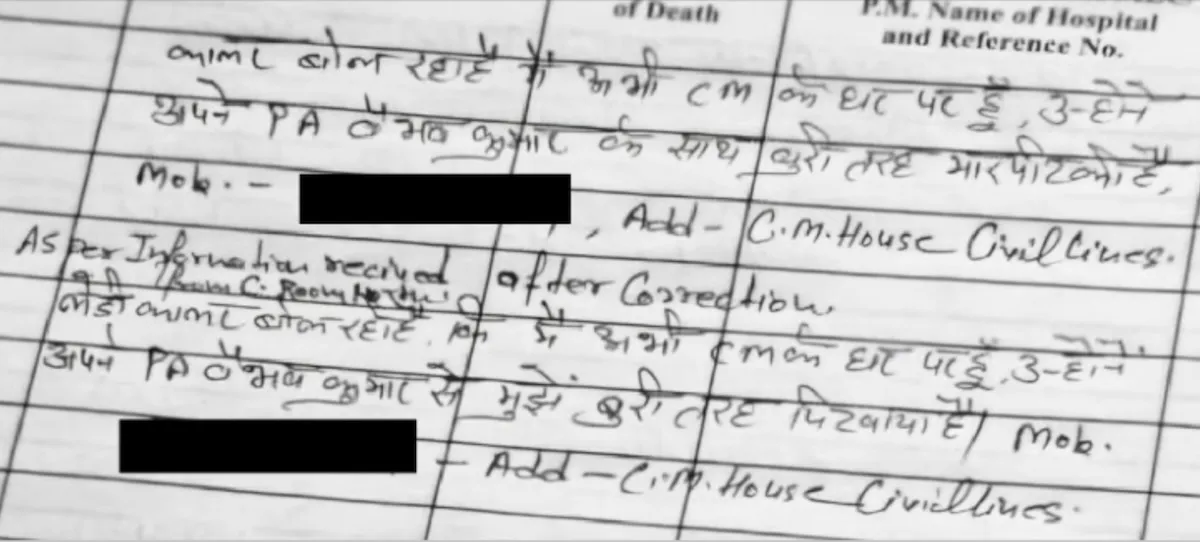 of Death
P.M. Name of Hospital
and Reference No.
कालर बोल रहा है मैं अभी CM के घर पर हूँ, उन्होंने
अपने PA वैभव कुमार के साथ बुरी तरह मारपीट की है,
Mob. -
, Add - C.M. House Civil Lines.
As per Information recived after Correction.
from C. Room North
लेडी कालर बोल रही है, कि मैं अभी CM के घर पर हूँ, उन्होंने
अपने PA वैभव कुमार से मुझे बुरी तरह पिटवाया है। Mob.
- Add - C.M. House Civil lines.